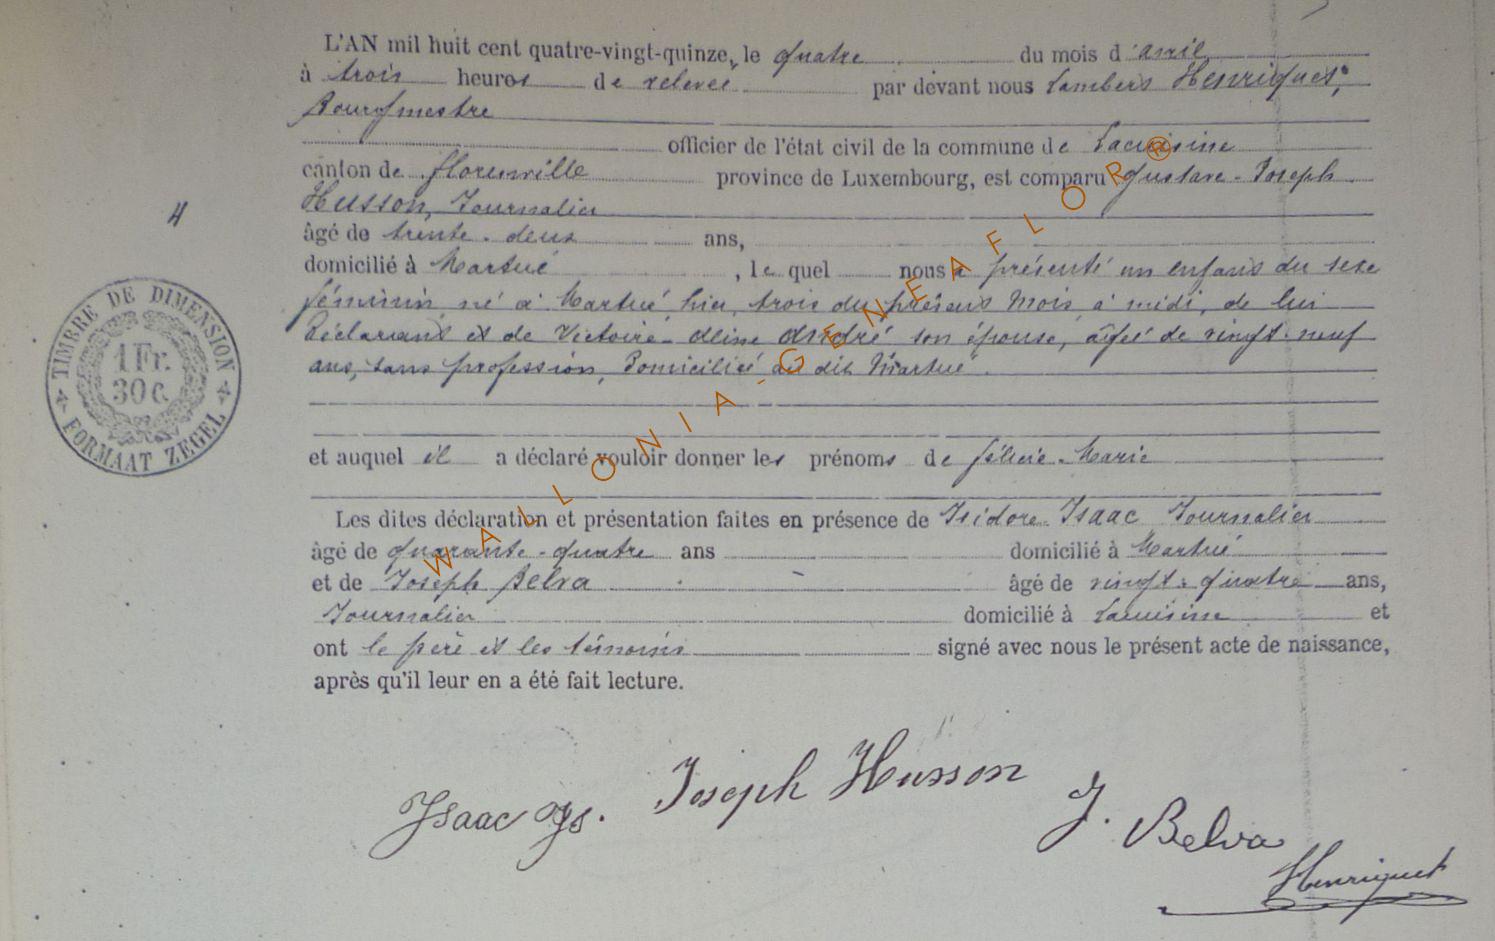 L'AN mil huit cent quatre-vingt-quinze, le quatre du mois d'avril
à trois heures de relevée par devant nous Lambert Henriquet,
Bourgmestre
officier de l'état civil de la commune de Lacuisine
canton de florenville province de Luxembourg, est comparu Gustave-Joseph
Husson, Journalier
4
âgé de trente-deux ans,
domicilié à Martué, le quel nous a présenté un enfant du sexe
féminin, né à Martué, hier, trois du présent mois, à midi, de lui
Déclarant et de Victoire-Aline André son épouse, âgée de vingt-neuf
ans, sans profession, Domiciliée au dit Martué.
TIMBRE DE DIMENSION
1 Fr.
30 c.
FORMAAT ZEGEL
et auquel il a déclaré vouloir donner les prénoms de félicie-Marie
Les dites déclaration et présentation faites en présence de Isidore Isaac Journalier
âgé de quarante-quatre ans domicilié à Martué
et de Joseph Belva âgé de vingt-quatre ans,
Journalier domicilié à Lacuisine et
ont le père et les témoins signé avec nous le présent acte de naissance,
après qu'il leur en a été fait lecture.
Isaac Is. Joseph Husson J. Belva
Henriquet
WALLONIA-GENEAFLOR®